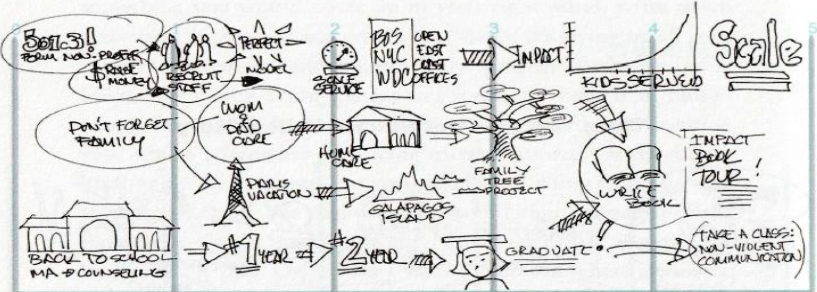 0 1 2 3 4 5
501.3!
FORM NON-PROFIT
$ RAISE
MONEY
RECRUIT
STAFF
PERFECT
MODEL
SCALE
SERVICE
BOS
NYC
WDC
OPEN
EAST
COAST
OFFICES
IMPACT
KIDS SERVED
Scale
DON'T FORGET
FAMILY
MOM
&
DAD
CARE
HOME
CARE
FAMILY
TREE
PROJECT
WRITE
BOOK
IMPACT
BOOK
TOUR!
PARIS
VACATION
GALAPAGOS
ISLAND
BACK TO SCHOOL
MA → COUNSELING
#1 YEAR
#2 YEAR
GRADUATE!
TAKE A CLASS:
NON-VIOLENT
COMMUNICATION